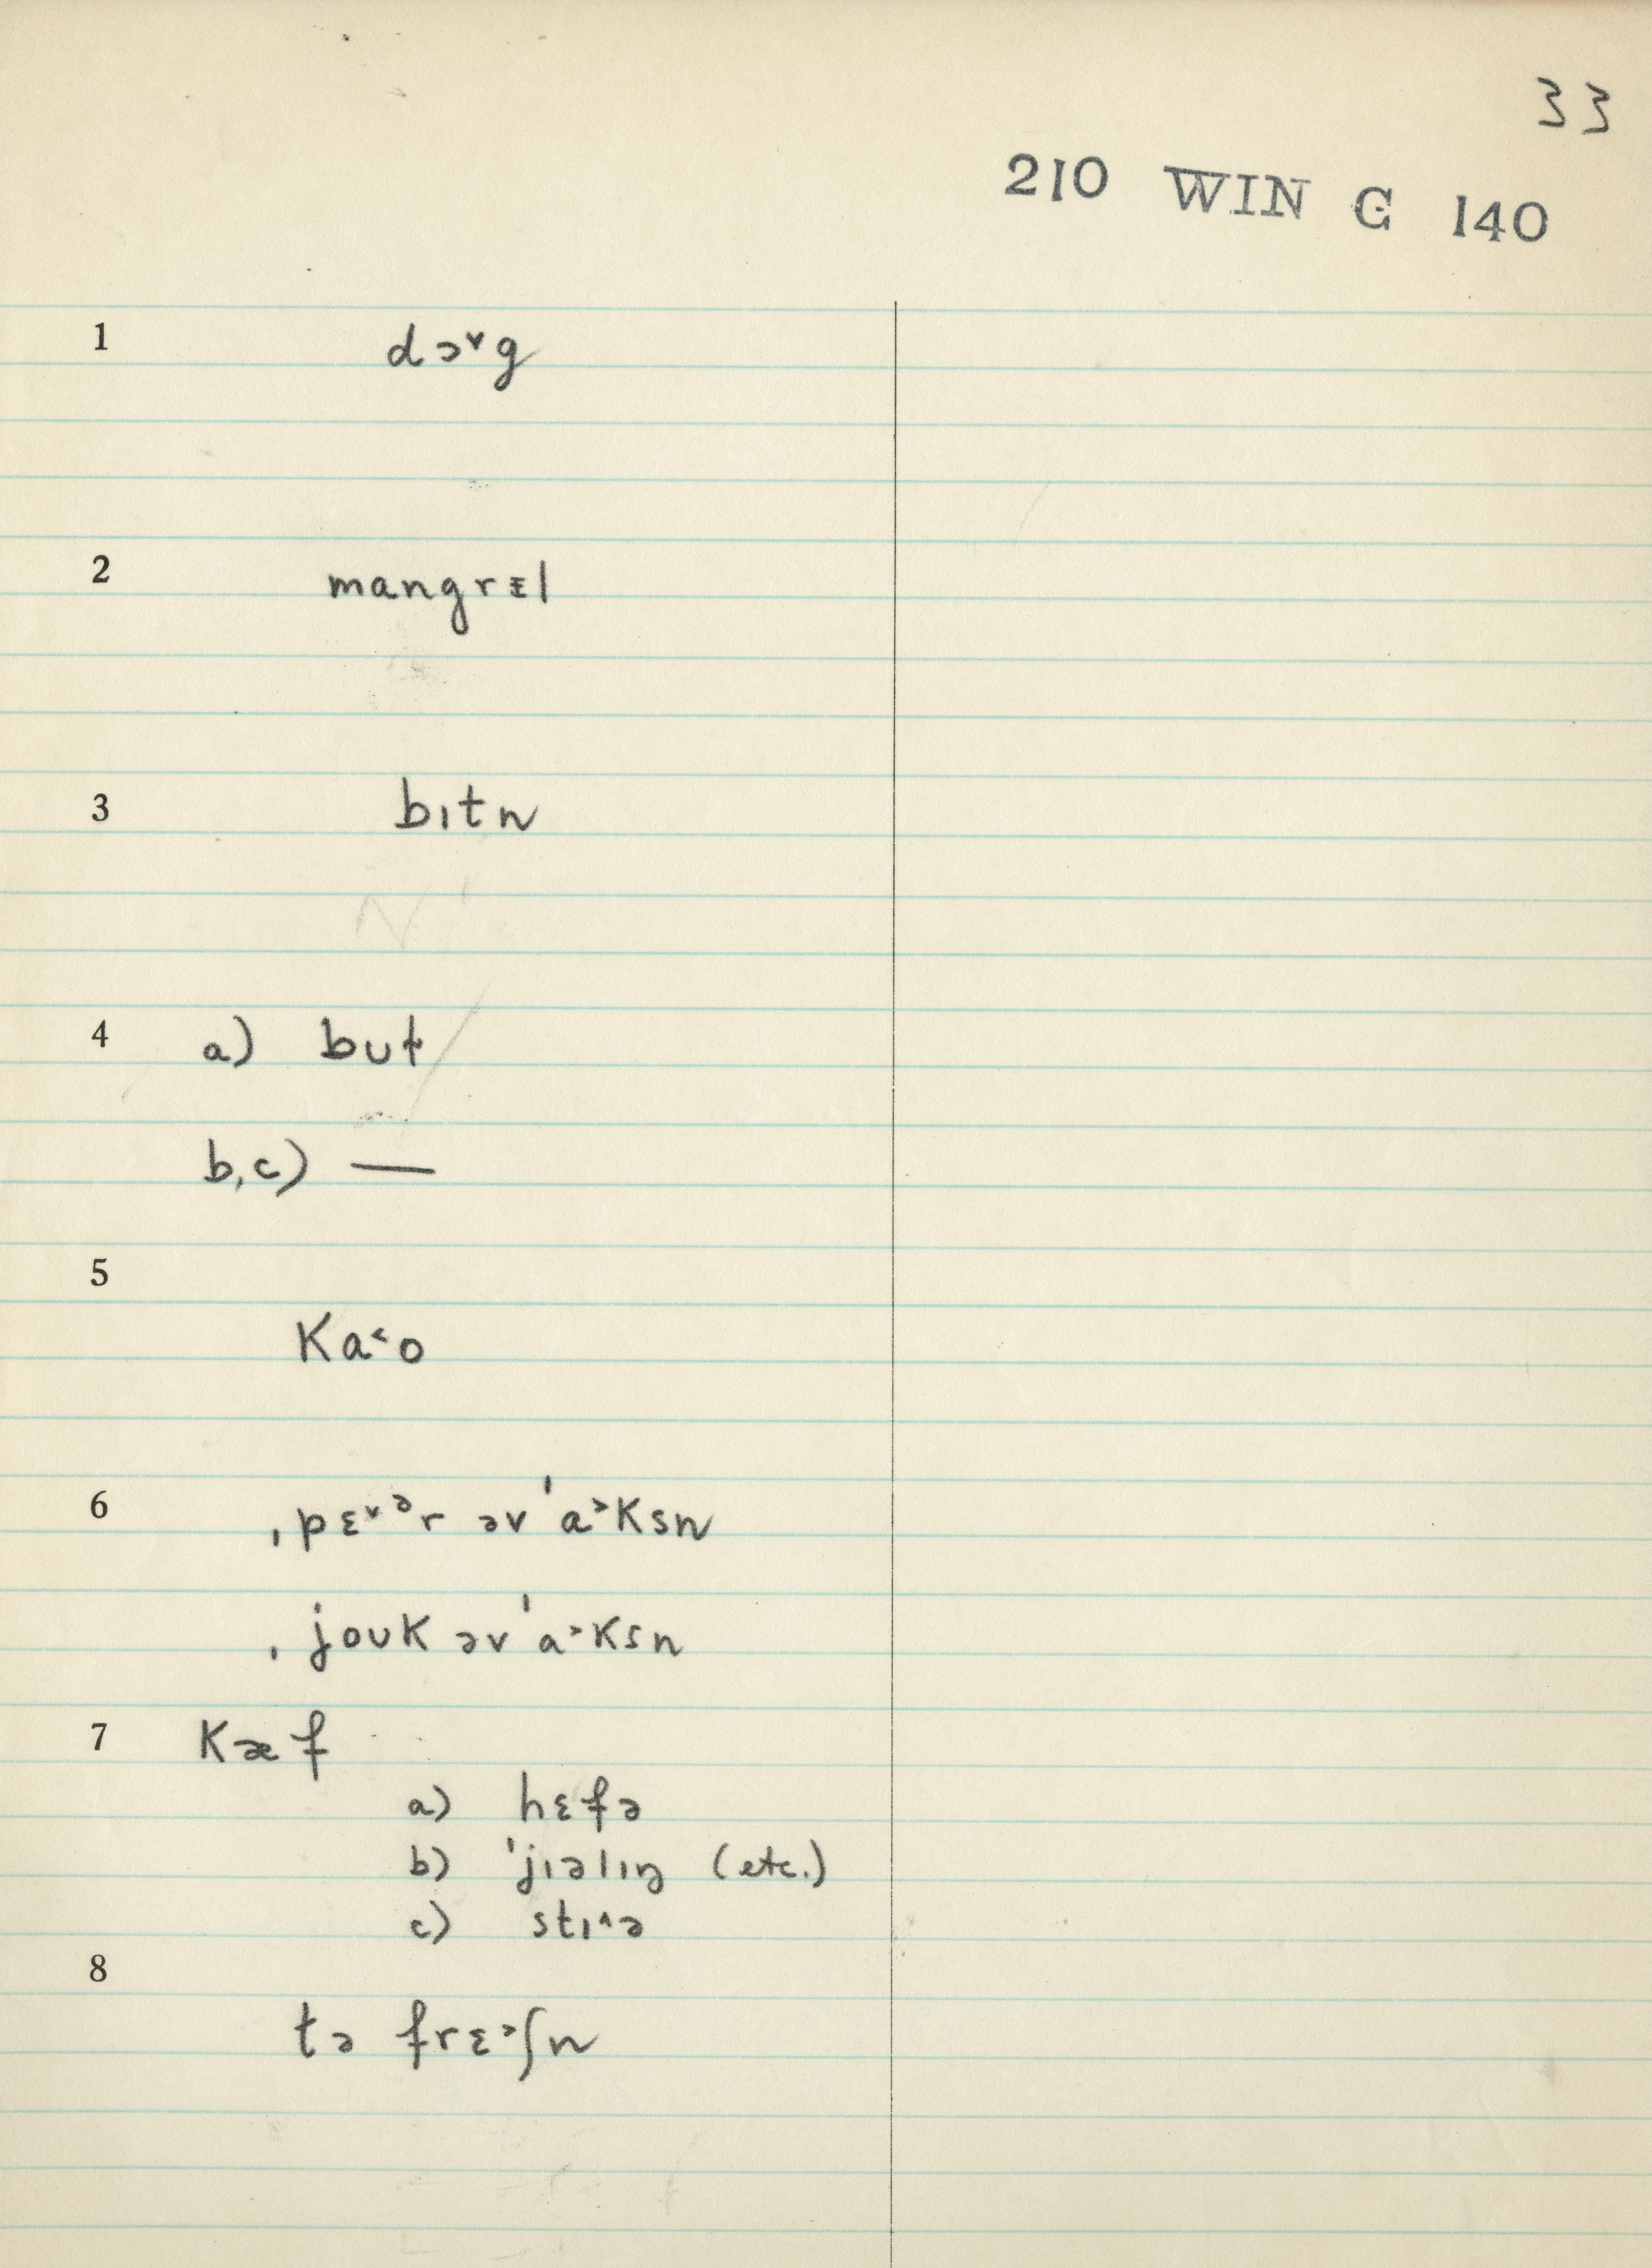 33
210 WIN C 140
1 dɔ˅g
2 mangrᵻl
3 bɪtn
4 a) but
b,c) —
5
Ka˂o
6 ˌpɛ˅ᵊr əv ˈa˃Ksn
ˌjouK əv ˈa˃Ksn
7 Kæf
a) hɛfə
b) ˈjɪəlɪŋ (etc.)
c) stɪ˄ə
8
tə frɛ˃ʃn